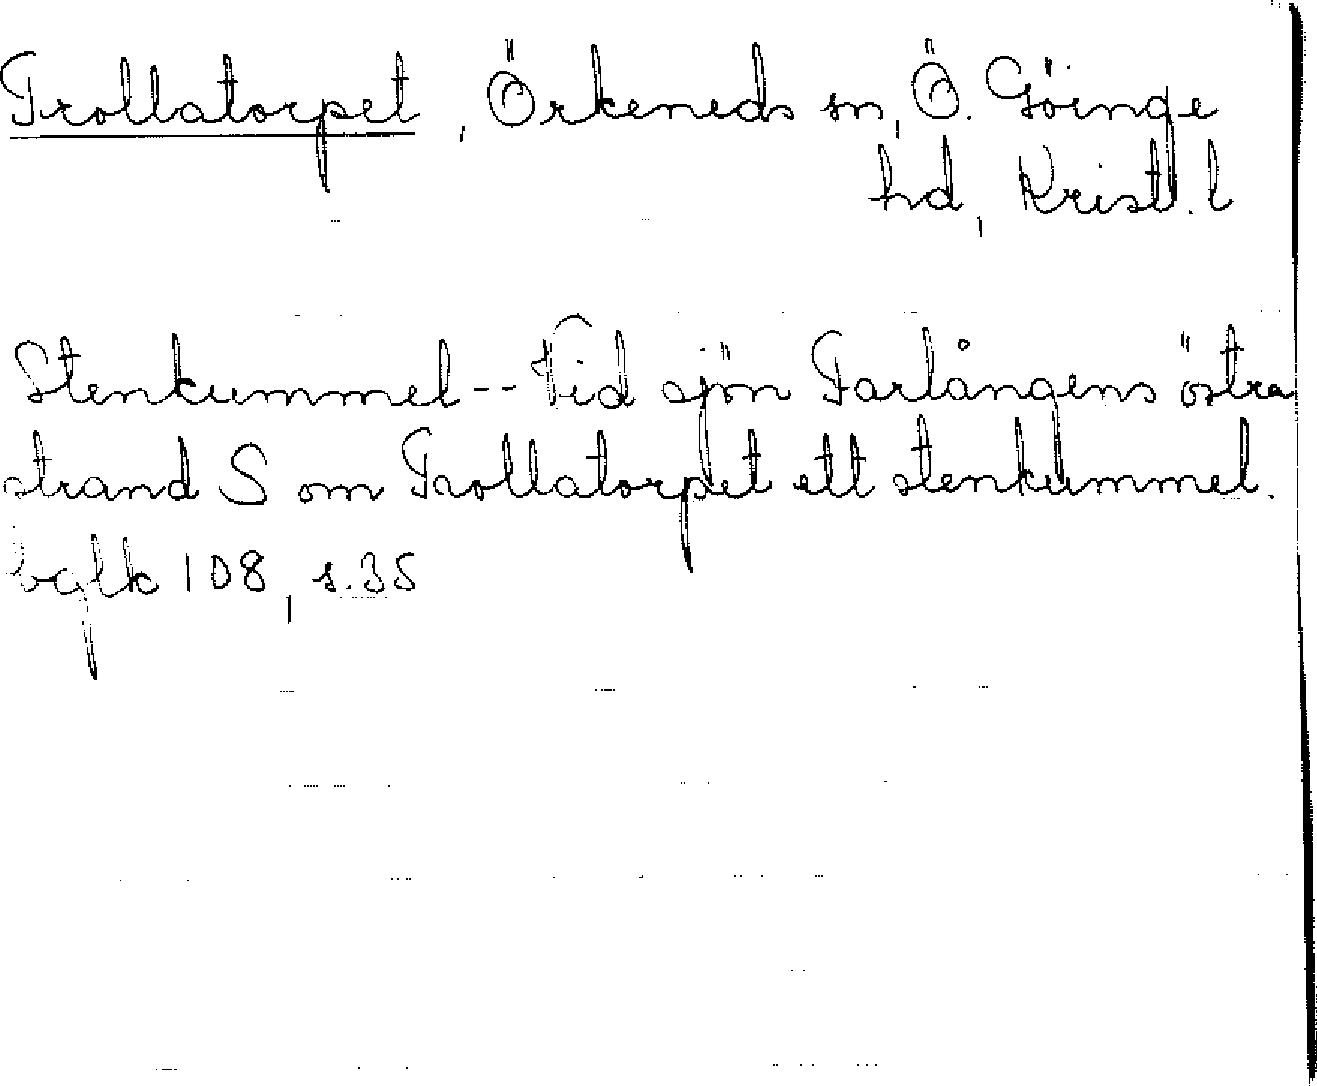 Trollatorpet, Örkeneds sn, Ö. Göinge
hd, Kristl. l
Stenkummel -- Vid sjön Tarlångens östra
strand S om Trollatorpet ett stenkummel.
bglk 108, s. 35